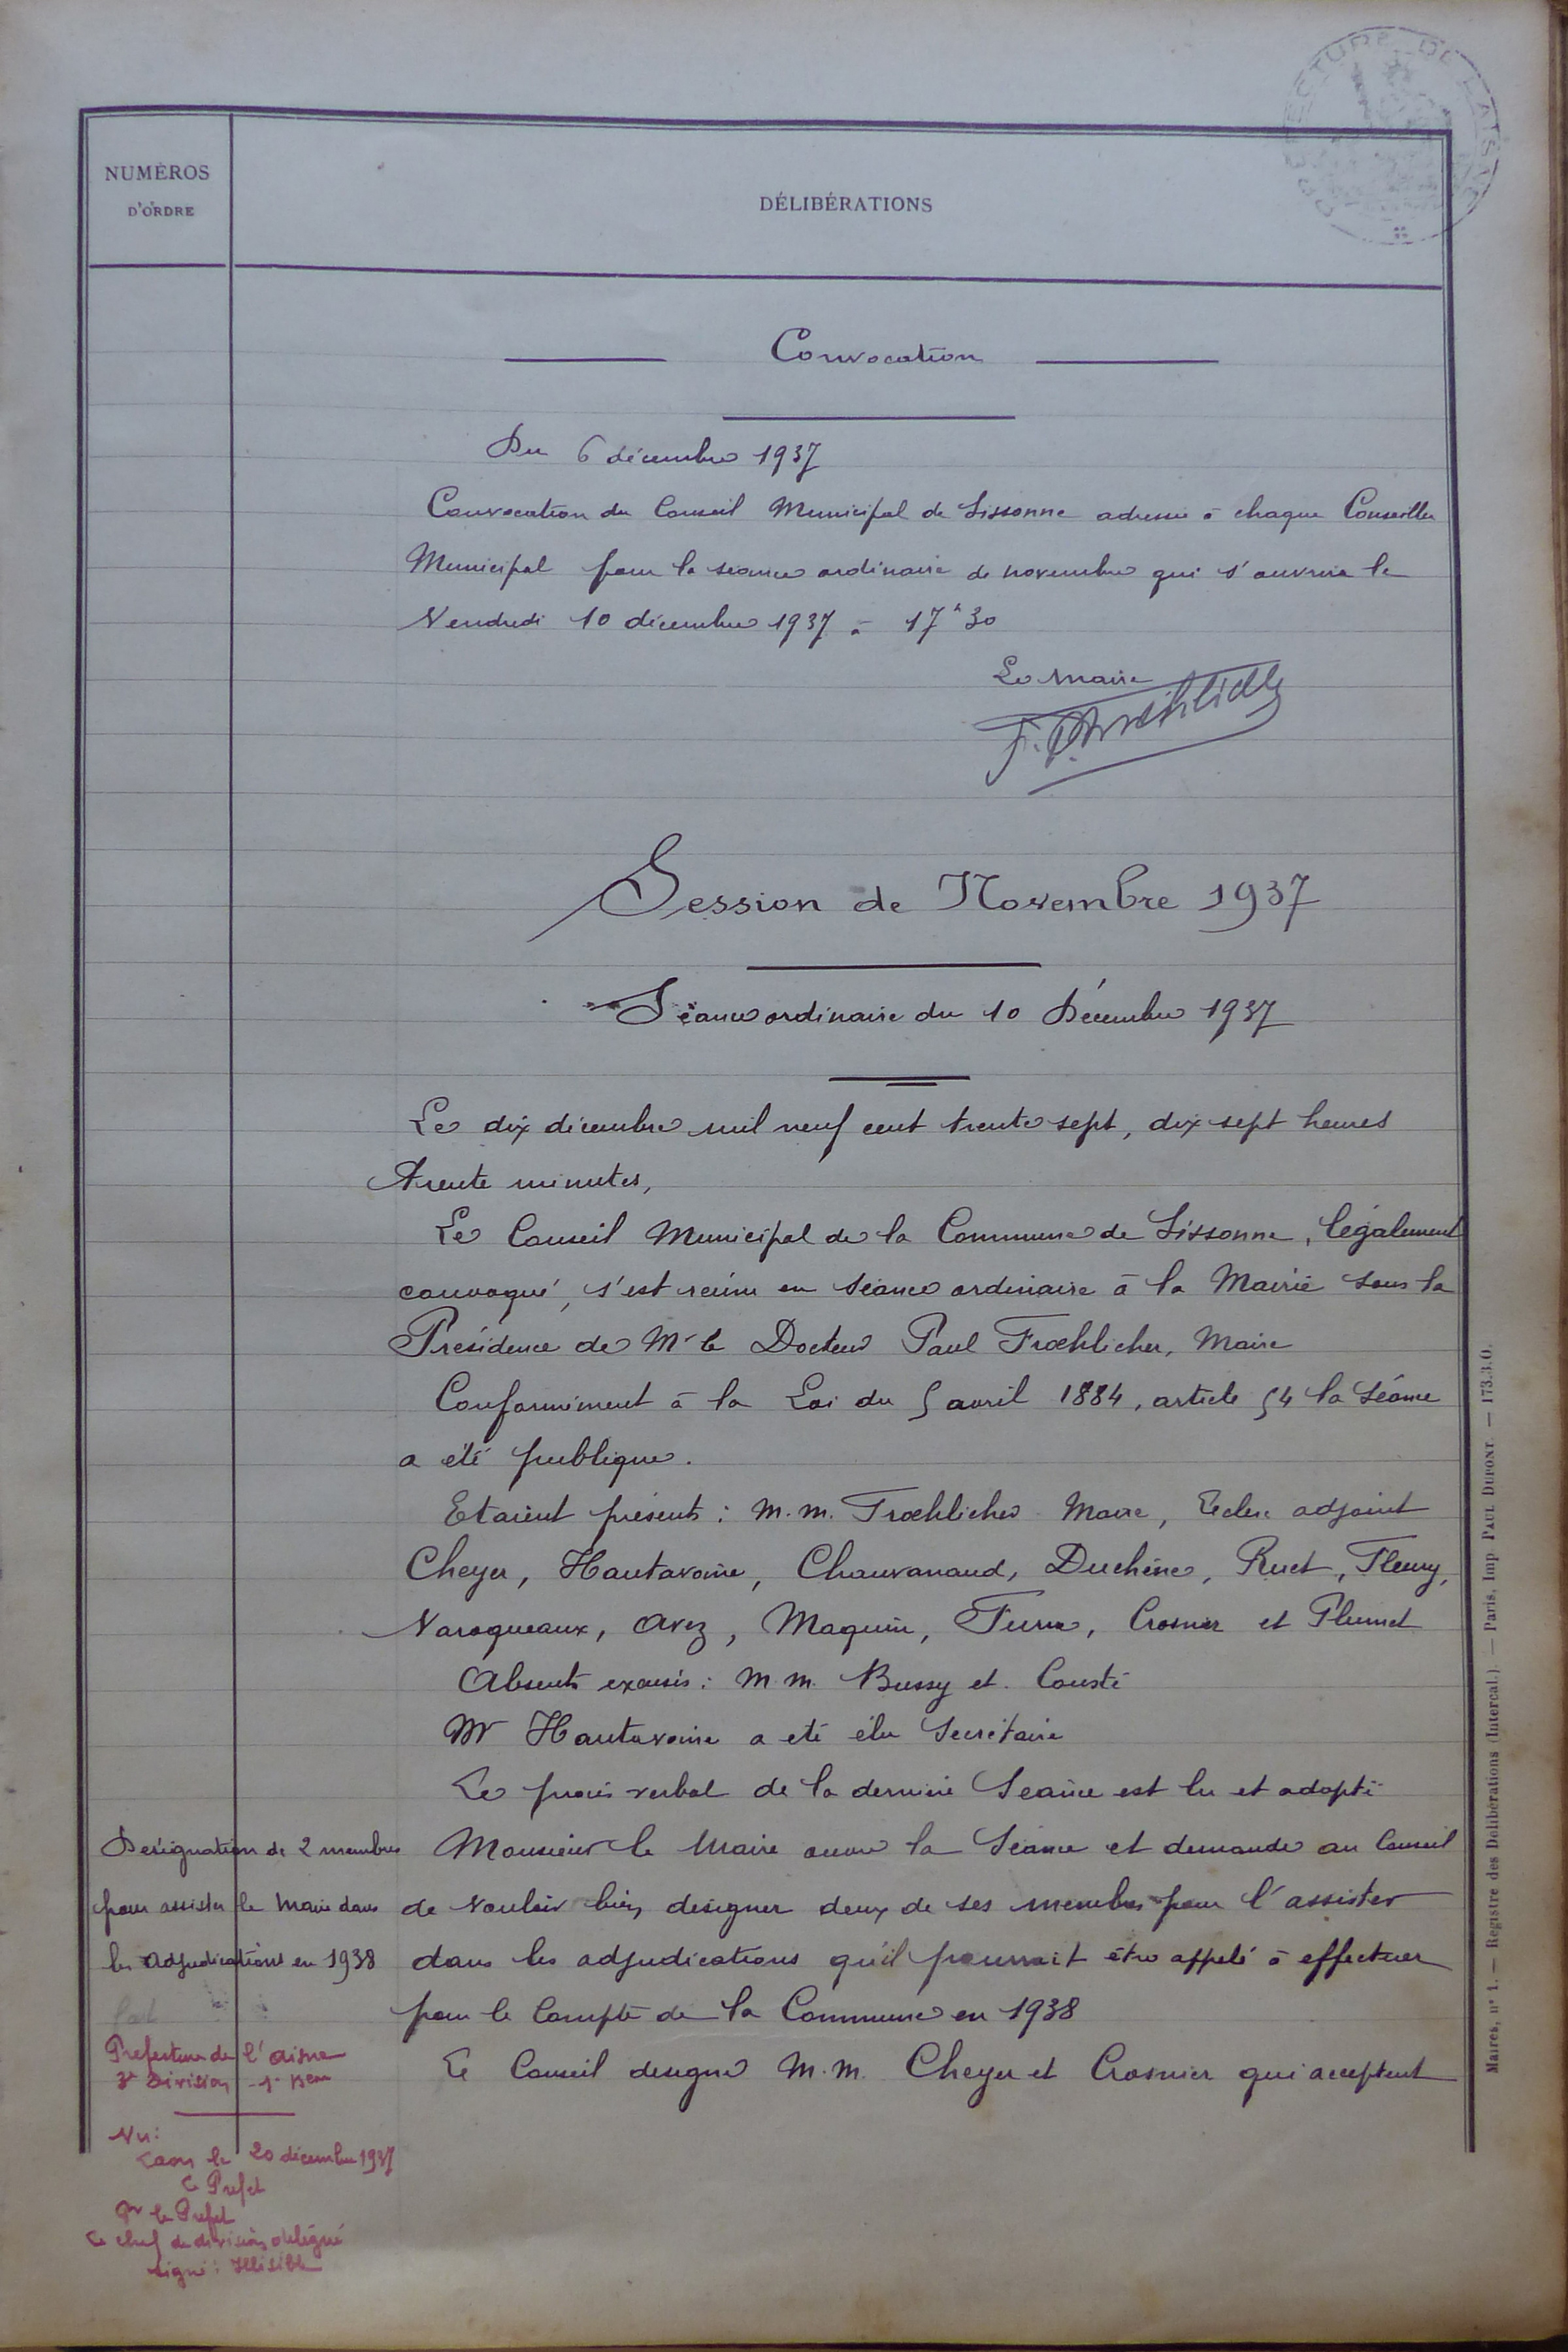 PRÉFECTURE DE L'AISNE
NUMÉROS
D'ORDRE
DÉLIBÉRATIONS
Convocation
Du 6 décembre 1937
Convocation du Conseil Municipal de Sissonne adressée à chaque Conseiller
Municipal pour la séance ordinaire de novembre qui s'ouvrira le
Vendredi 10 décembre 1937 à 17h30
Le Maire
Session de Novembre 1937
Séance ordinaire du 10 Décembre 1937
Le dix décembre mil neuf cent trente sept, dix sept heures
trente minutes,
Le Conseil Municipal de la Commune de Sissonne, légalement
convoqué, s'est réuni en séance ordinaire à la Mairie sous la
Présidence de Mr le Docteur Paul Froehlicher, Maire
Conformément à la Loi du 5 avril 1884, article 54 la Séance
a été publique.
Etaient présents : M.M. Froehlicher Maire, Leclerc adjoint
Cheyer, Hautavoine, Chauvanaud, Duchêne, Ruet, Fleury,
Varoqueaux, Avez, Maquin, Crosnier et Plumet
Absents excusés : M.M. Bussy et Cousté
Mr Hautavoine a été élu Secrétaire
Le procès verbal de la dernière Séance est lu et adopté
Désignation de 2 membres
pour assister le Maire dans
les adjudications en 1938
Monsieur le Maire ouvre la Séance et demande au Conseil
de vouloir bien désigner deux de ses membres pour l'assister
dans les adjudications qu'il pourrait être appelé à effectuer
pour le Compte de la Commune en 1938
Le Conseil désigne M.M. Cheyer et Crosnier qui acceptent
Préfecture de l'Aisne
3e Division - 1er Beau
Vu :
Laon le 20 décembre 1937
Le Préfet
Pr le Préfet
Le chef de division délégué
signé : Illisible
Maires, n° 1. — Registre des Délibérations (Intercal.). — Paris, Imp. PAUL DUPONT. — 173.3.O.